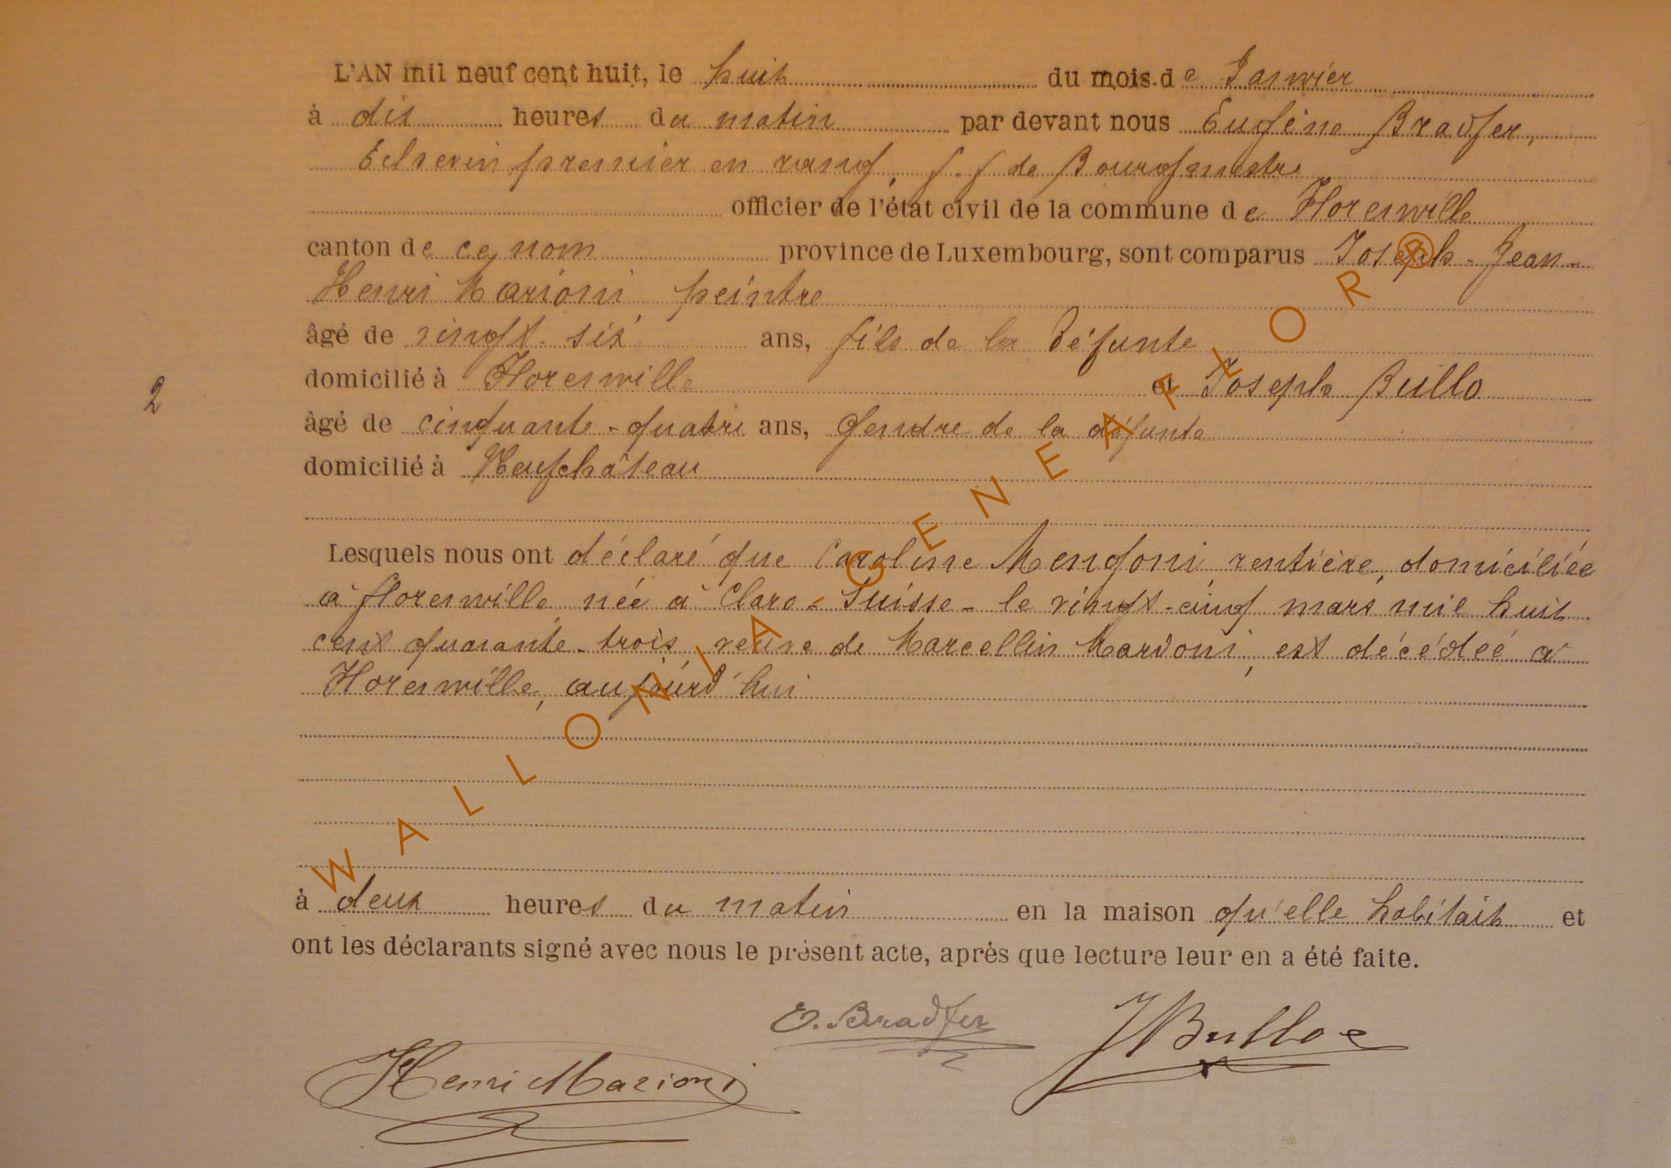 L'AN mil neuf cent huit, le huit du mois de Janvier
à dix heures du matin par devant nous Eugène Bradfer,
Echevin premier en rang, f.f de Bourgmestre
officier de l'état civil de la commune de Florenville
canton de ce nom province de Luxembourg, sont comparus Joseph-Jean-
Henri Marioni, peintre
âgé de vingt-six ans, fils de la défunte
domicilié à Florenville et Joseph Bullo
2
âgé de cinquante-quatre ans, Gendre de la défunte
domicilié à Neufchâteau
Lesquels nous ont déclaré que Caroline Mengoni, rentière, domiciliée
à florenville, née à Claro-Suisse- le vingt-cinq mars mil huit
cent quarante-trois, veuve de Marcellin Marioni, est décédée à
Florenville, aujourd'hui
à deux heures du matin en la maison qu'elle habitait et
ont les déclarants signé avec nous le présent acte, après que lecture leur en a été faite.
E. Bradfer
JBulloe
Henri Marioni
WALLONIA GENEAFLOR®